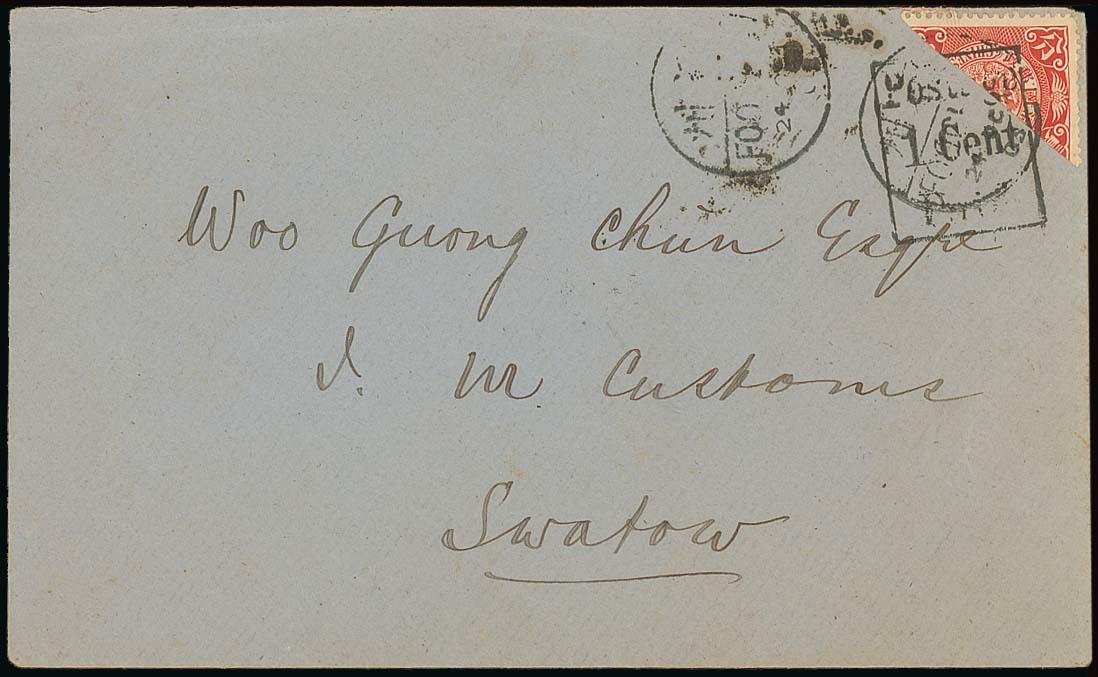 FOO
24
1 Cent
Woo Guong Chun Esqre
I. M Customs
Swatow